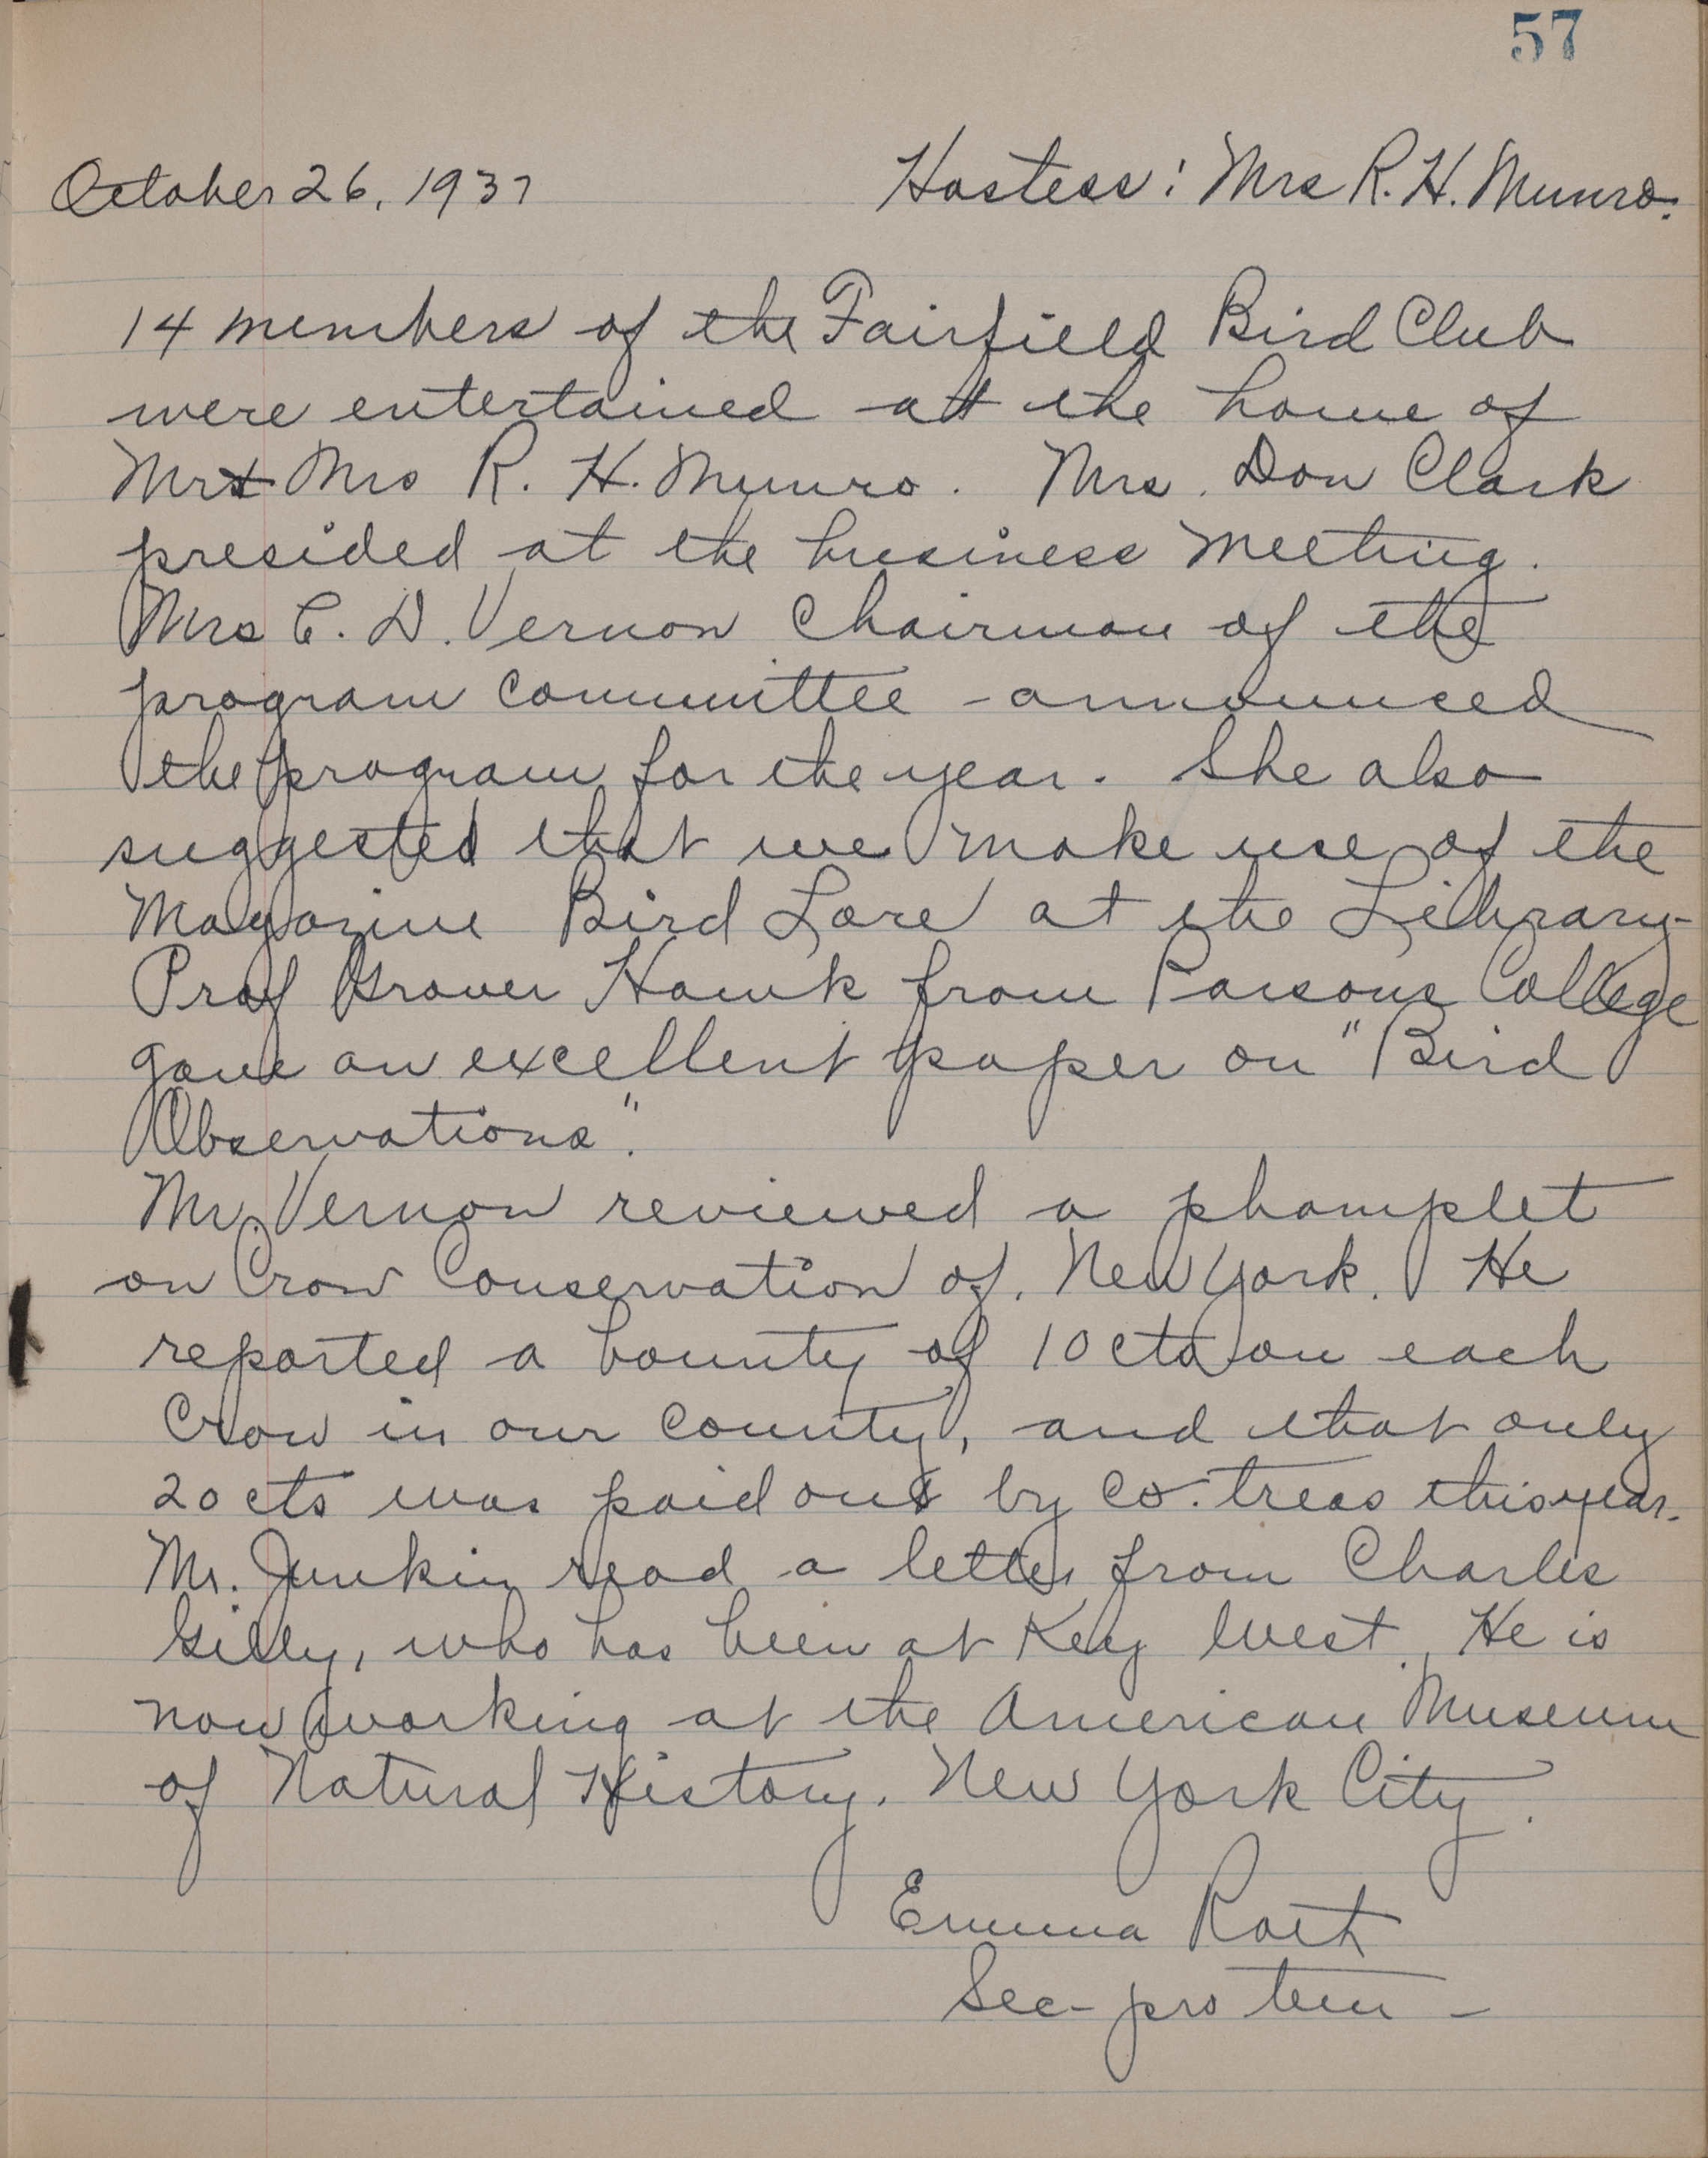 57
October 26, 1937
Hostess: Mrs R. H. Munro.
14 members of the Fairfield Bird Club
were entertained at the home of
Mr & Mrs R. H. Munro. Mrs. Don Clark
presided at the business meeting.
Mrs C. D. Vernon Chairman of the
program committee - announced
the program for the year. She also
suggested that we make use of the
Magazine Bird Lore at the Library-
Prof Grover Hawk from Parsons College
gave an excellent paper on "Bird
Observations".
Mr. Vernon reviewed a phamplet
on Crow Conservation of. New York. He
reported a bounty of 10 cts on each
Crow in our County, and that only
20 cts was paid out by Co. treas this year.
Mr. Junkin read a letter from Charles
Gilly, who has been at Key West. He is
now working at the American Museum
of Natural History. New York City.
Emma Roth
Sec- pro tem -